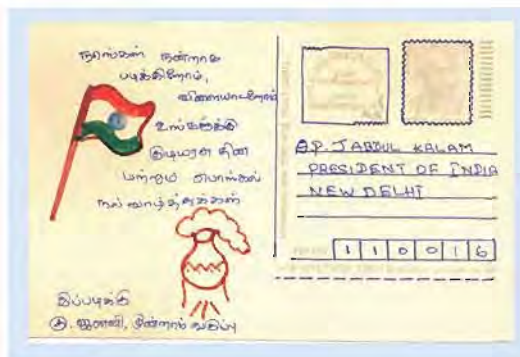 நாங்கள் நன்றாக
படிக்கிறோம்,
விளையாடுகிறோம்
உங்களுக்கு
குடியரசு தின
மற்றும் பொங்கல்
நல் வாழ்த்துக்கள்
இப்படிக்கு
மூன்றாம் வகுப்பு
A.P. JABDUL KALAM
PRESIDENT OF INDIA
NEW DELHI
110016